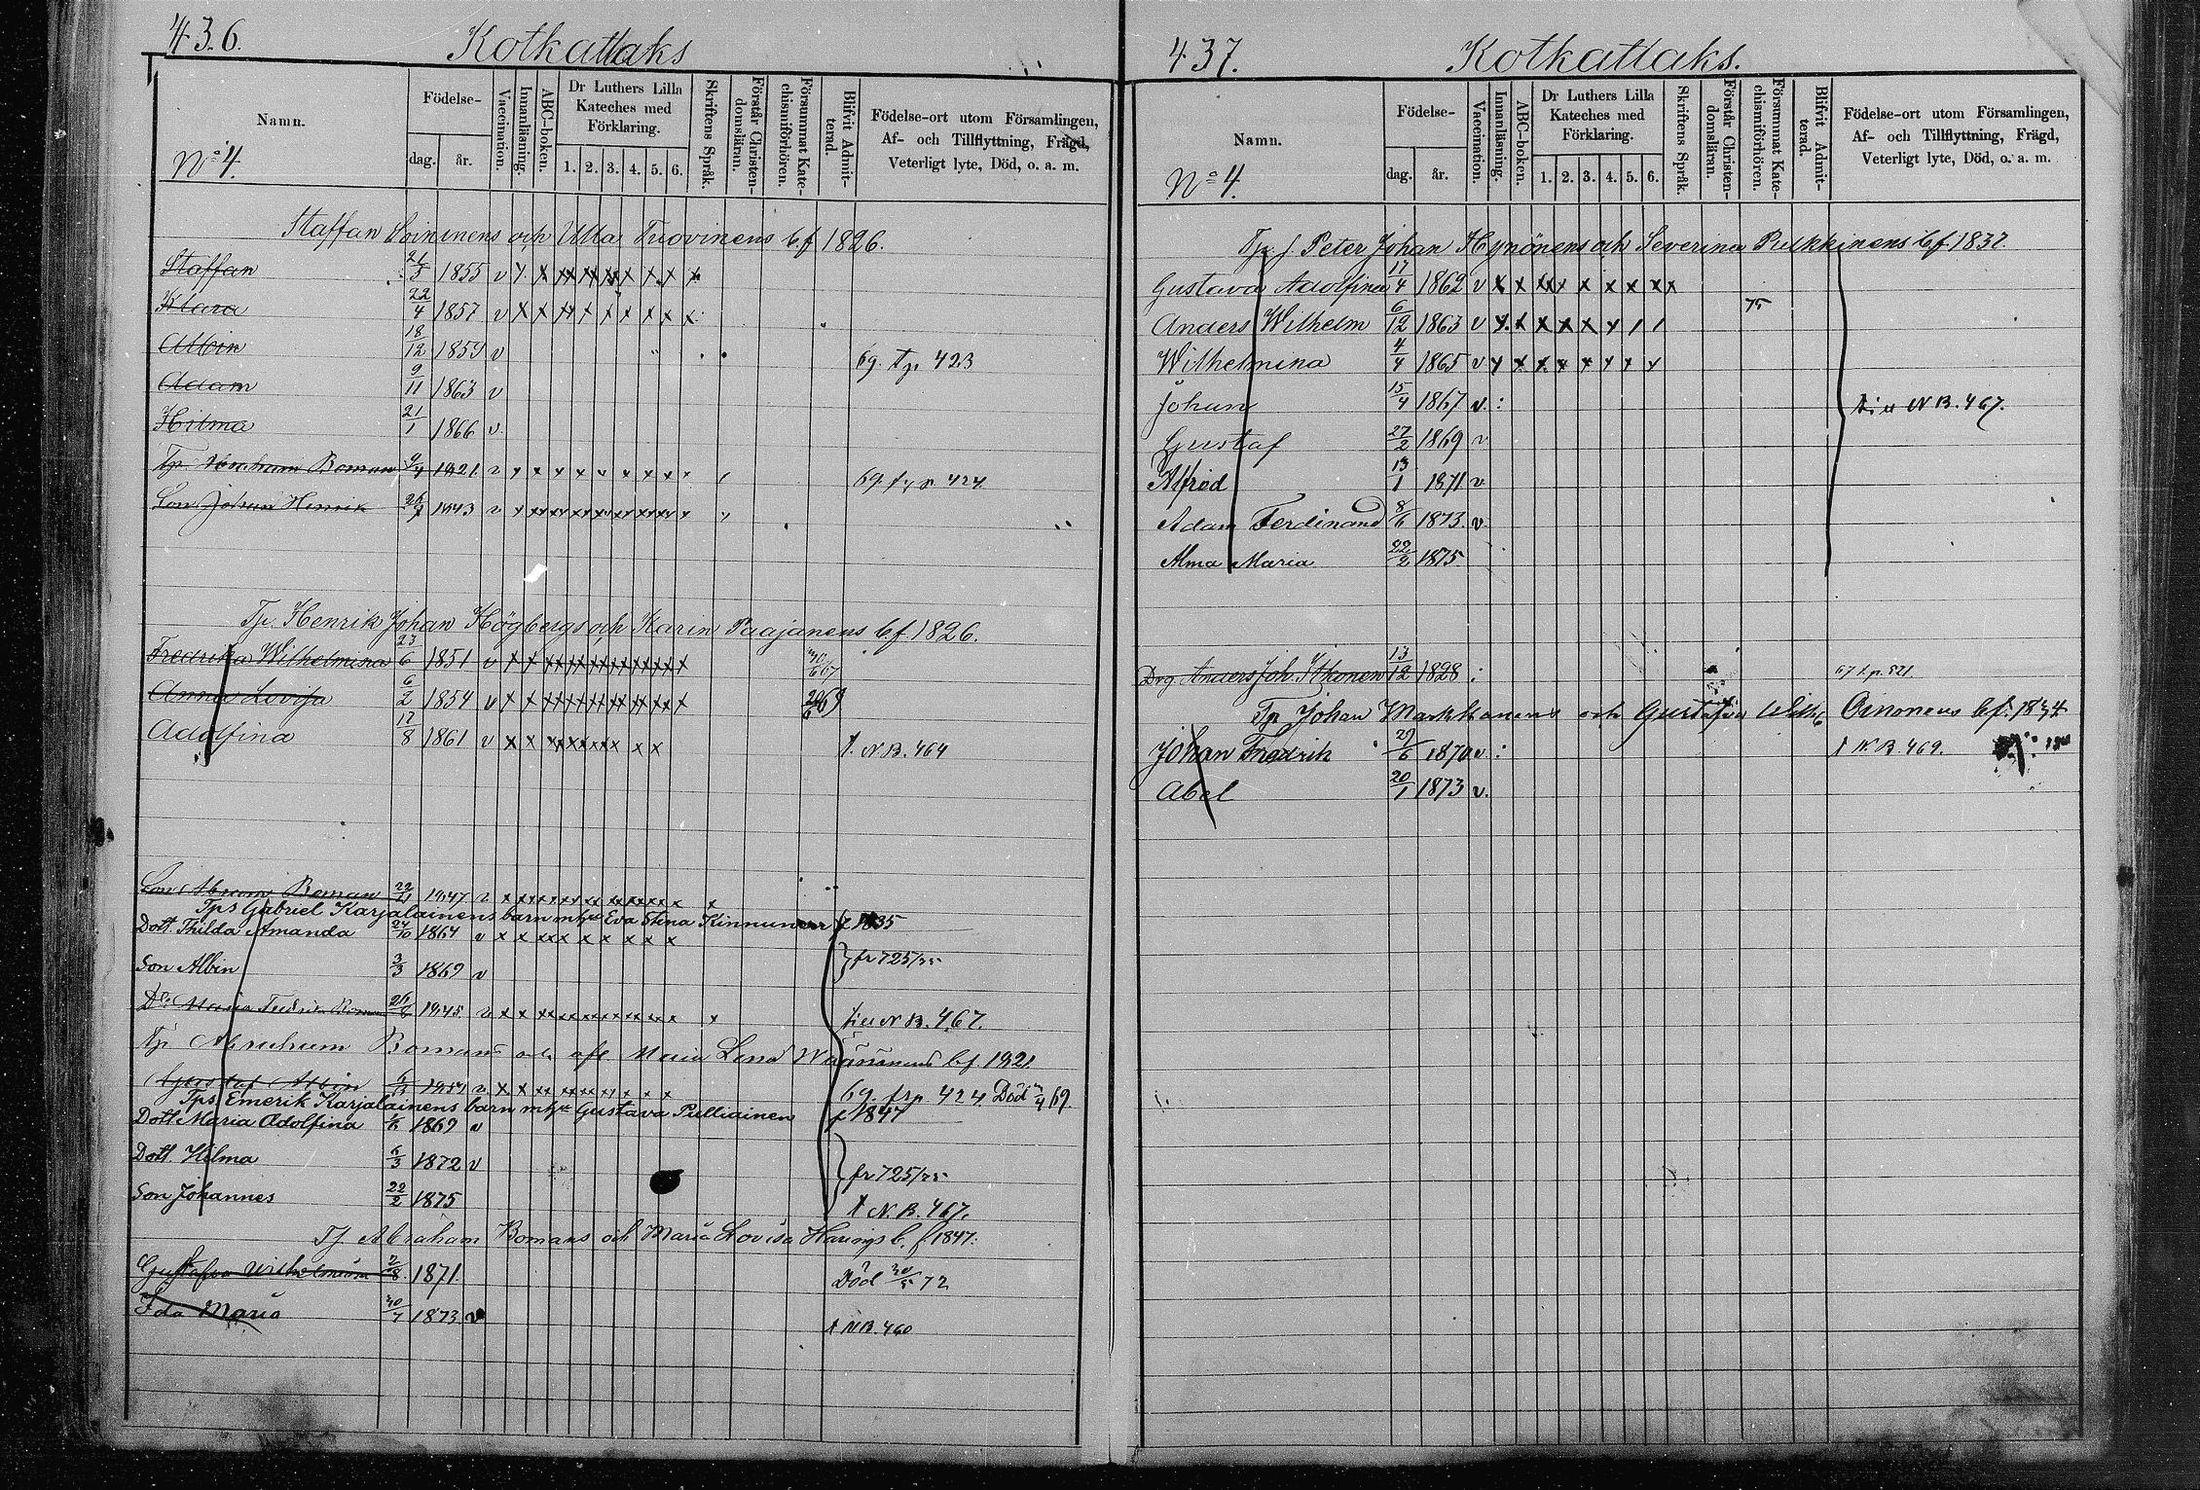 436.
Kotkattaks
Namn.
Födelse-
dag. år.
Vaccination.
Innanläsning.
ABC-boken.
Dr Luthers Lilla Kateches med Förklaring.
1. 2. 3. 4. 5. 6.
Skriftens Språk.
Förstår Christen-domsläran.
Försummat Kate-chismiförhören.
Blifvit Admit-terad.
Födelse-ort utom Församlingen,
Af- och Tillflyttning, Frägd,
Veterligt lyte, Död, o. a. m.
No 4.
Staffan Loininens och Ulla Tuovinens b. f 1826.
Staffan 21/3 1855 v x x x x x x x x x x
Klara 22/4 1857 v x x x x x x x x x
Albin 18/12 1859 v 69. tp. 423
Adam 9/11 1863 v
Hilma 21/1 1866 v
Tp. Abraham Boman 1821 v x x x x x x x x x 69. 424
Son Johan Henrik 1843 v x x x x x x x x x
Tp. Henrik Johan Högbergs och Karin Paajanens b. f. 1826.
Fredrika Wilhelmina 23/6 1851 v x x x x x x x x x 67
Anna Lovisa 6/2 1854 v x x x x x x x x x 69
Adolfina 17/8 1861 v x x x x x x x x t. N B. 464
Son Abram Boman 1847 v x x x x x x x x x
Tps Gabriel Karjalainens barn m hu Eva Stina Kinnunen f 1835
Dott. Thilda Amanda 24/10 1864 v x x x x x x x x x
Son Albin 3/3 1869 v fr 725/75
Dr Maria Fredrika Boman 26/6 1845 v x x x x x x x x x till N B. 467.
Tp Abraham Bomans och afl. Maria Lena Wäänänens b. f. 1821
Gustaf Albin v x x x x x x x x x 69. frp 424 Död 69.
Tps Emerik Karjalainens barn m hu Gustava Pulliainen f 1847
Dott Maria Adolfina 1869 v
Dott. Hilma 6/3 1872 v fr 725/75
Son Johannes 22/2 1875 t N. B. 467.
Tp Abraham Bomans och Maria Lovisa Harings b. f 1847.
Gustafva Wilhelmina 1871 Död 72
Ida Maria 30/7 1873 v t N B. 460
437.
Kotkattaks.
Namn.
Födelse-
dag. år.
Vaccination.
Innanläsning.
ABC-boken.
Dr Luthers Lilla Kateches med Förklaring.
1. 2. 3. 4. 5. 6.
Skriftens Språk.
Förstår Christen-domsläran.
Försummat Kate-chismiförhören.
Blifvit Admit-terad.
Födelse-ort utom Församlingen,
Af- och Tillflyttning, Frägd,
Veterligt lyte, Död, o. a. m.
No 4.
Tp. Peter Johan Hynönens och Severina Pulkkinens b. f 1837.
Gustava Adolfina 17/4 1862 v x x x x x x x x x
Anders Wilhelm 6/12 1863 v x x x x x x 75
Wilhelmina 4/4 1865 v x x x x x x x x
Johan 15/4 1867 v. till N B. 467.
Gustaf 27/2 1869 v
Alfred 13/1 1871 v
Adam Ferdinand 8/6 1873. v
Alma Maria 22/2 1875
Drg Anders Joh. Ithonen 13/12 1828 67 t. p. 821
Tp Johan Markkanens och Gustafva Wilh. Oinonens b. f.
Johan Fredrik 29/6 1870 v. t N. B. 469.
Abel 20/1 1873 v.